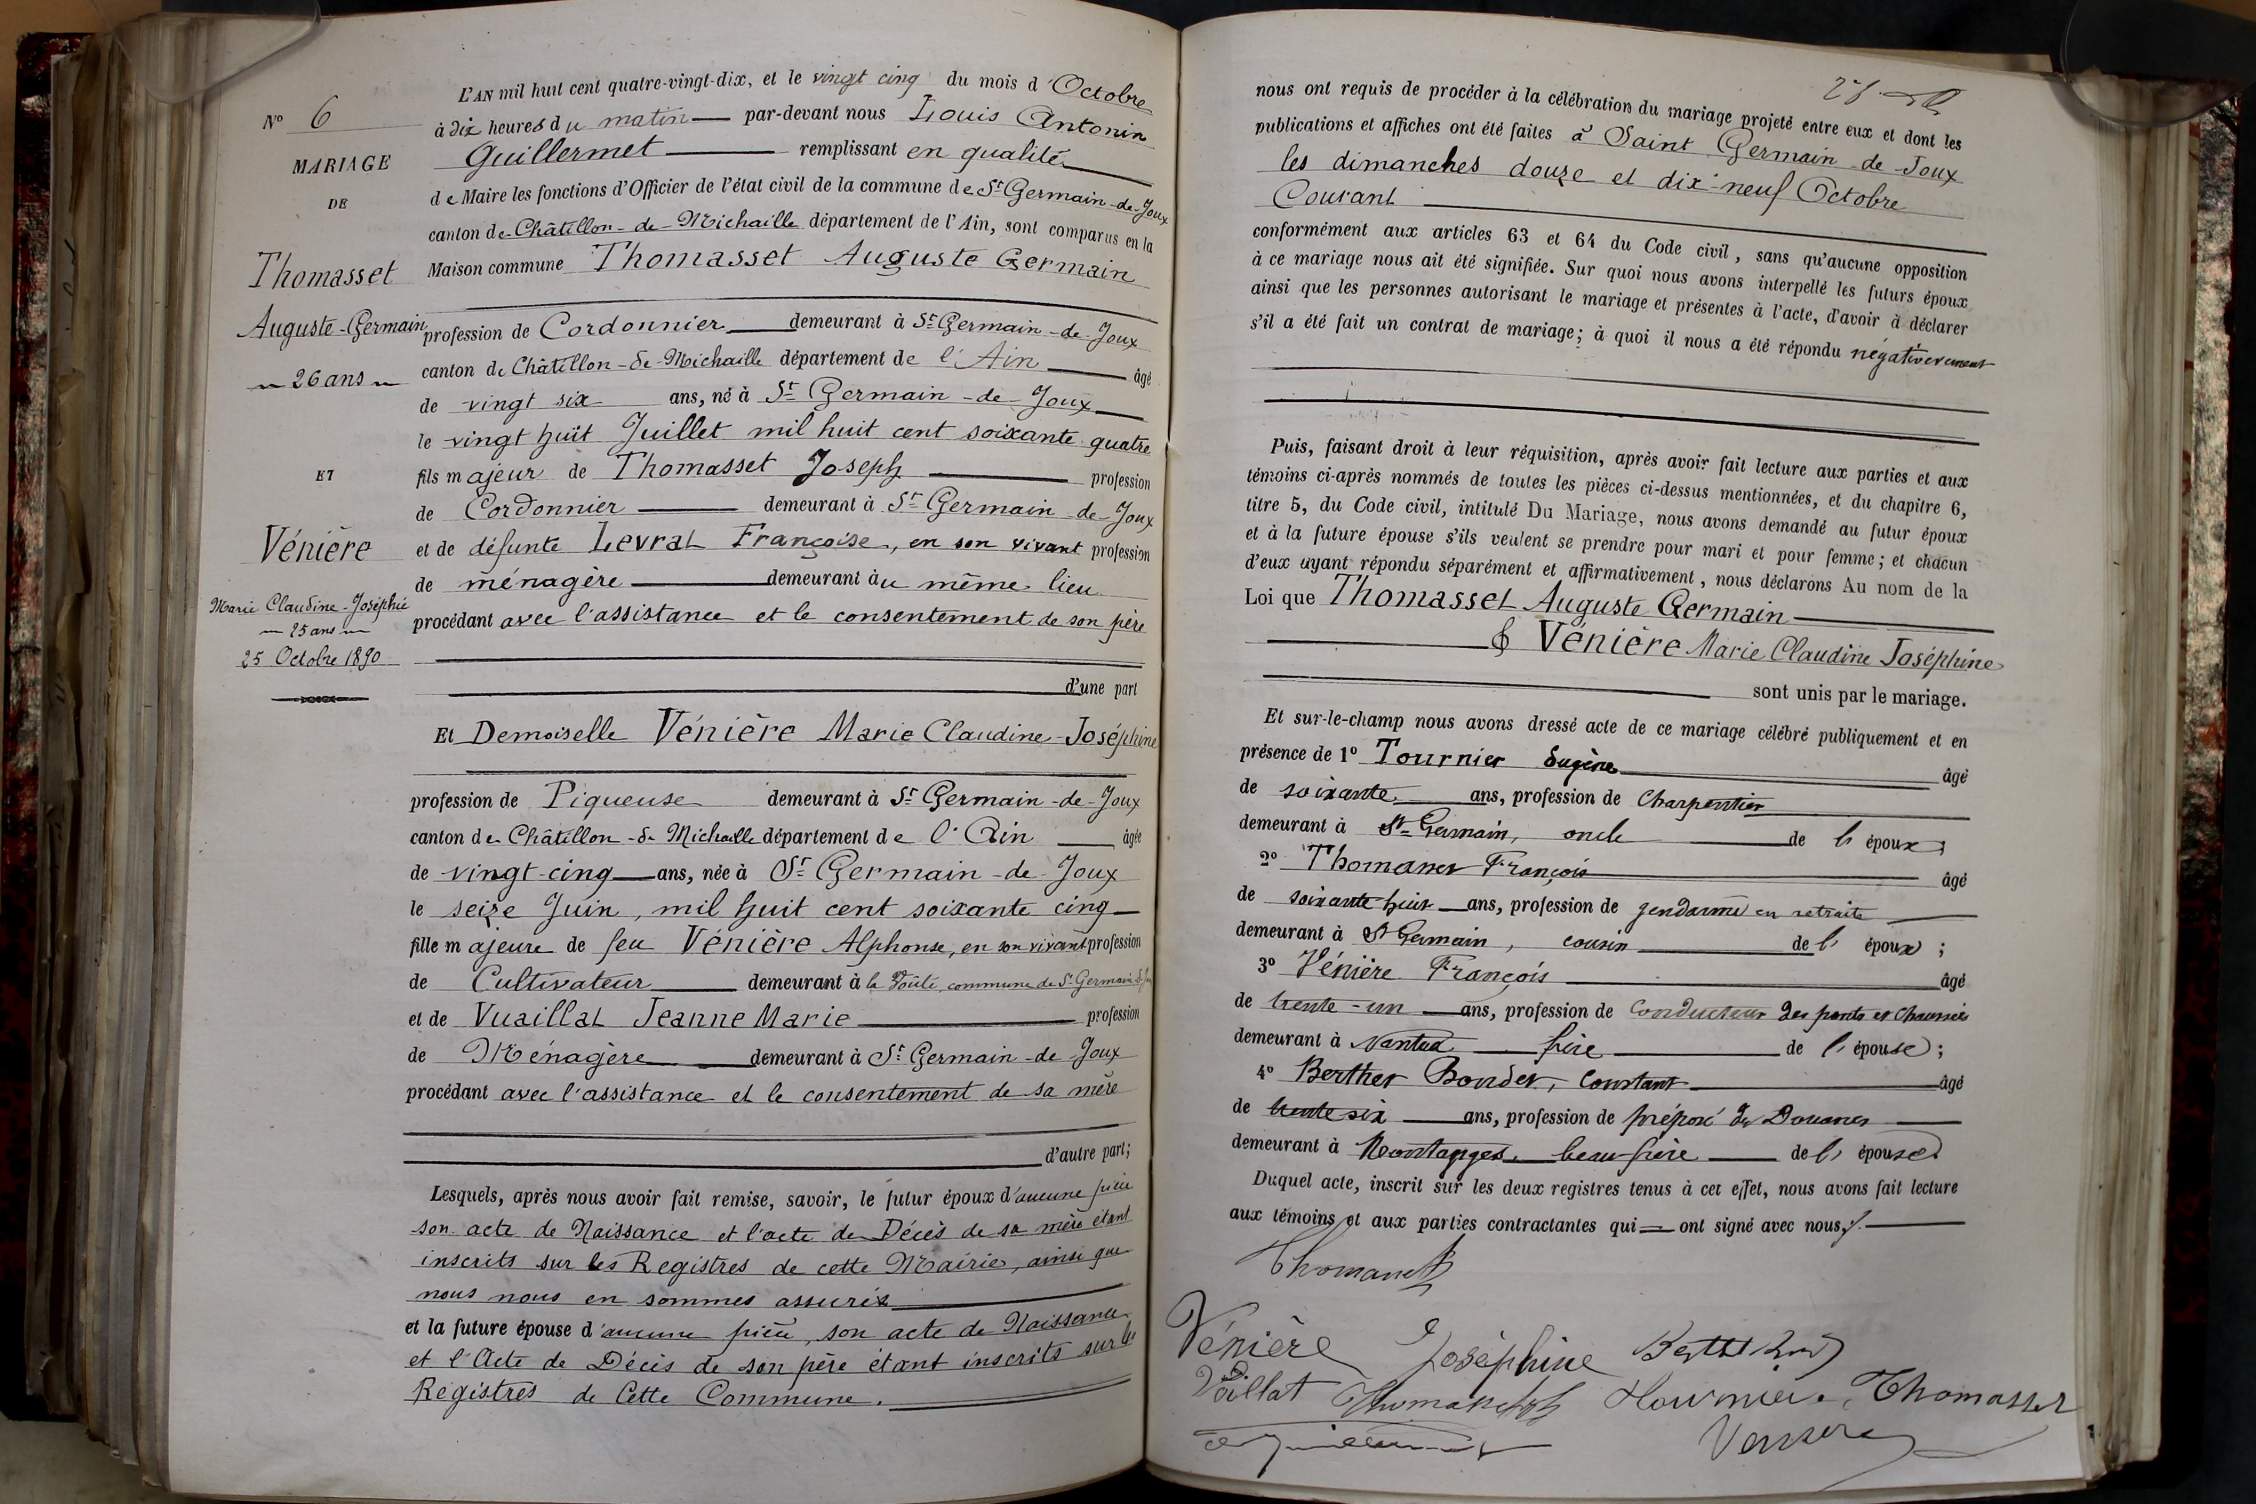 N° 6
MARIAGE
DE
Thomasset
Auguste-Germain
26 ans
ET
Vénière
Marie Claudine-Joséphie
25 ans
25 Octobre 1890
L'AN mil huit cent quatre-vingt-dix, et le vingt cinq du mois d'Octobre
à dix heures du matin par-devant nous Louis Antonin
Guillermet remplissant en qualité
de Maire les fonctions d'Officier de l'état civil de la commune de St Germain-de-Joux
canton de Châtillon-de-Michaille département de l'Ain, sont comparus en la
Maison commune Thomasset Auguste Germain
profession de Cordonnier demeurant à St Germain-de-Joux
canton de Châtillon-de-Michaille département de l'Ain âgé
de vingt six ans, né à St Germain-de-Joux
le vingt huit Juillet mil huit cent soixante quatre
fils majeur de Thomasset Joseph profession
de Cordonnier demeurant à St Germain de-Joux
et de défunte Levrat Françoise, en son vivant profession
de ménagère demeurant au même lieu
procédant avec l'assistance et le consentement de son père
d'une part
Et Demoiselle Vénière Marie Claudine-Joséphine
profession de Piqueuse demeurant à St Germain-de-Joux
canton de Châtillon-de Michaille département de l'Ain âgée
de vingt-cinq ans, née à St Germain-de-Joux
le seize Juin, mil huit cent soixante cinq
fille majeure de feu Vénière Alphonse, en son vivant profession
de Cultivateur demeurant à la Voûte, commune de St Germain de Joux
et de Vuaillat Jeanne Marie profession
de Ménagère demeurant à St Germain-de-Joux
procédant avec l'assistance et le consentement de sa mère
d'autre part;
Lesquels, après nous avoir fait remise, savoir, le futur époux d'aucune pièce
son acte de Naissance et l'acte de Décès de sa mère étant
inscrits sur les Registres de cette Mairie, ainsi que
nous nous en sommes assurés
et la future épouse d'aucune pièce, son acte de Naissance
et l'Acte de Décès de son père étant inscrits sur les
Registres de Cette Commune.
nous ont requis de procéder à la célébration du mariage projeté entre eux et dont les
publications et affiches ont été faites à Saint Germain-de-Joux
les dimanches douze et dix-neuf Octobre
Courant
conformément aux articles 63 et 64 du Code civil, sans qu'aucune opposition
à ce mariage nous ait été signifiée. Sur quoi nous avons interpellé les futurs époux
ainsi que les personnes autorisant le mariage et présentes à l'acte, d'avoir à déclarer
s'il a été fait un contrat de mariage; à quoi il nous a été répondu négativement
Puis, faisant droit à leur réquisition, après avoir fait lecture aux parties et aux
témoins ci-après nommés de toutes les pièces ci-dessus mentionnées, et du chapitre 6,
titre 5, du Code civil, intitulé Du Mariage, nous avons demandé au futur époux
et à la future épouse s'ils veulent se prendre pour mari et pour femme; et chacun
d'eux ayant répondu séparément et affirmativement, nous déclarons Au nom de la
Loi que Thomasset Auguste Germain
& Vénière Marie Claudine Joséphine
sont unis par le mariage.
Et sur-le-champ nous avons dressé acte de ce mariage célébré publiquement et en
présence de 1° Tournier Eugène âgé
de soixante ans, profession de Charpentier
demeurant à St Germain, oncle de l'époux;
2° Thomasset François âgé
de soixante huit ans, profession de gendarme en retraite
demeurant à St Germain, cousin de l'époux;
3° Vénière François âgé
de trente-un ans, profession de Conducteur des ponts et chaussées
demeurant à Nantua frère de l'épouse;
4° Berthet Bondet, Constant âgé
de trente six ans, profession de préposé des Douanes
demeurant à Montanges, beau-frère de l'épouse.
Duquel acte, inscrit sur les deux registres tenus à cet effet, nous avons fait lecture
aux témoins et aux parties contractantes qui ont signé avec nous.
Thomasset
Vénière Joséphine Berthet
Vaillat Thomasset Jh Tournier Thomasset
Veniere